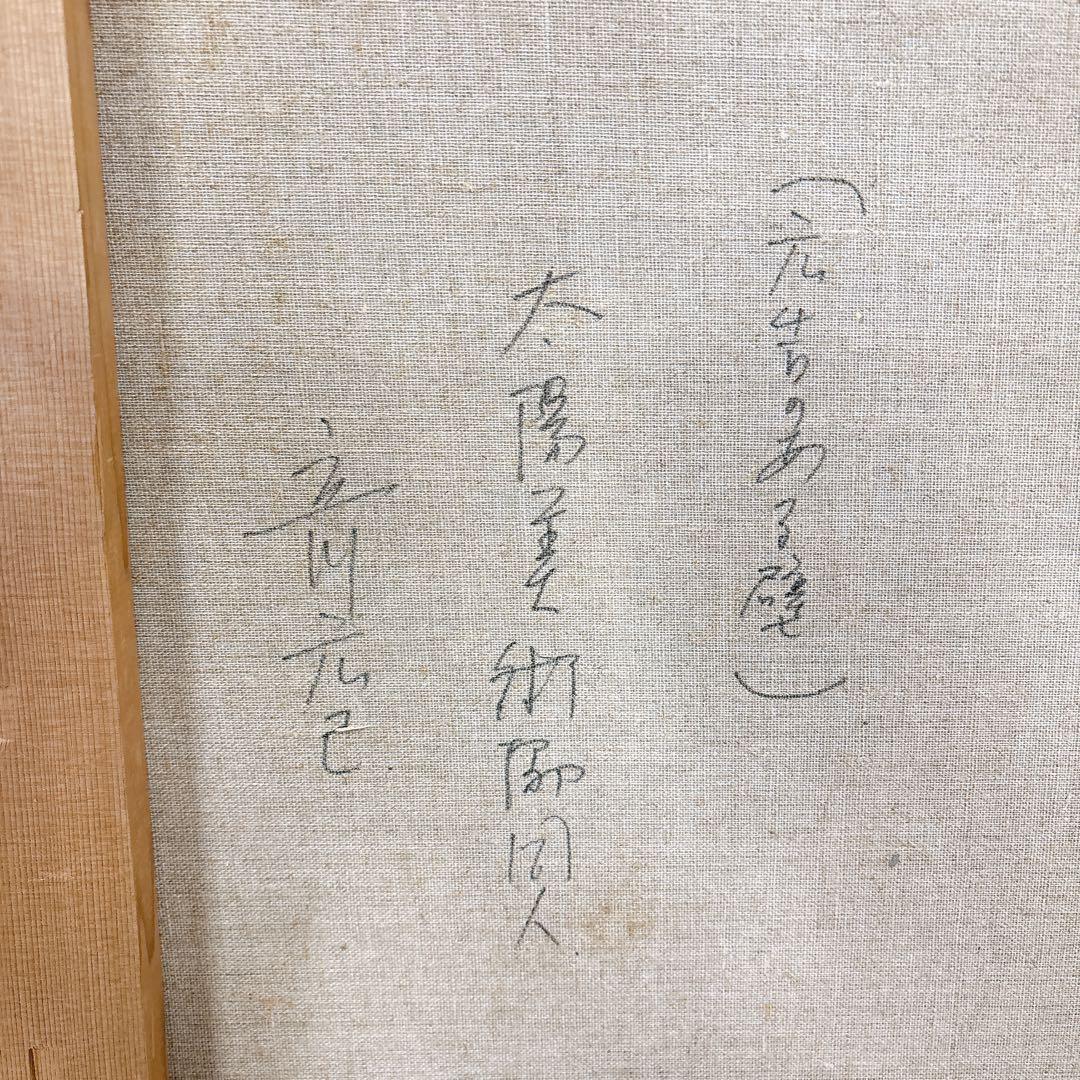 （広告のある壁）
太陽美術協同人
立川広己